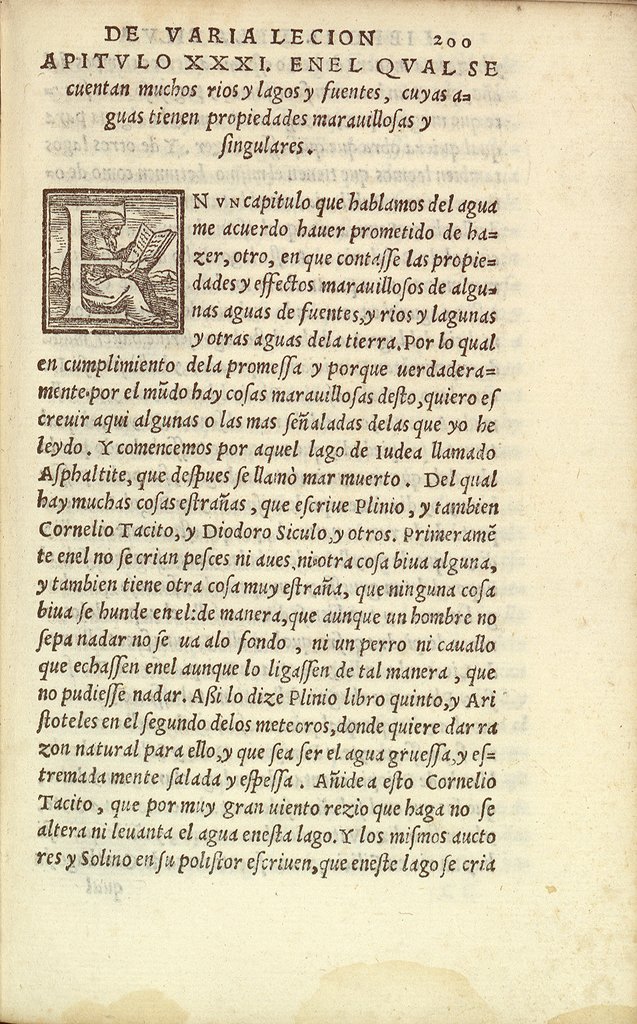 DE VARIA LECION 200
APITVLO XXXI. ENEL QVAL SE
cuentan muchos rios y lagos y fuentes, cuyas a=
guas tienen propiedades marauilloſas y
ſingulares.
EN VN capitulo que hablamos del agua
me acuerdo hauer prometido de ha=
zer, otro, en que contaſſe las propie=
dades y effectos marauilloſos de algu=
nas aguas de fuentes, y rios y lagunas
y otras aguas dela tierra. Por lo qual
en cumplimiento dela promeſſa y porque uerdadera=
mente por el mūdo hay coſas marauilloſas deſto, quiero eſ
creuir aqui algunas o las mas ſeñaladas delas que yo he
leydo. Y comencemos por aquel lago de Iudea llamado
Aſphaltite, que deſpues ſe llamò mar muerto. Del qual
hay muchas coſas eſtrañas, que eſcriue Plinio, y tambien
Cornelio Tacito, y Diodoro Siculo, y otros. Primeramē
te enel no ſe crian peſces ni aues, ni otra coſa biua alguna,
y tambien tiene otra coſa muy eſtraña, que ninguna coſa
biua ſe hunde en el: de manera, que aunque un hombre no
ſepa nadar no ſe ua alo fondo, ni un perro ni cauallo
que echaſſen enel aunque lo ligaſſen de tal manera, que
no pudieſſe nadar. Aßi lo dize Plinio libro quinto, y Ari
ſtoteles en el ſegundo delos meteoros, donde quiere dar ra
zon natural para ello, y que ſea ſer el agua grueſſa, y eſ=
tremada mente ſalada y eſpeſſa. Añide a eſto Cornelio
Tacito, que por muy gran uiento rezio que haga no ſe
altera ni leuanta el agua eneſta lago. Y los miſmos aucto
res y Solino en ſu poliſtor eſcriuen, que eneſte lago ſe cria